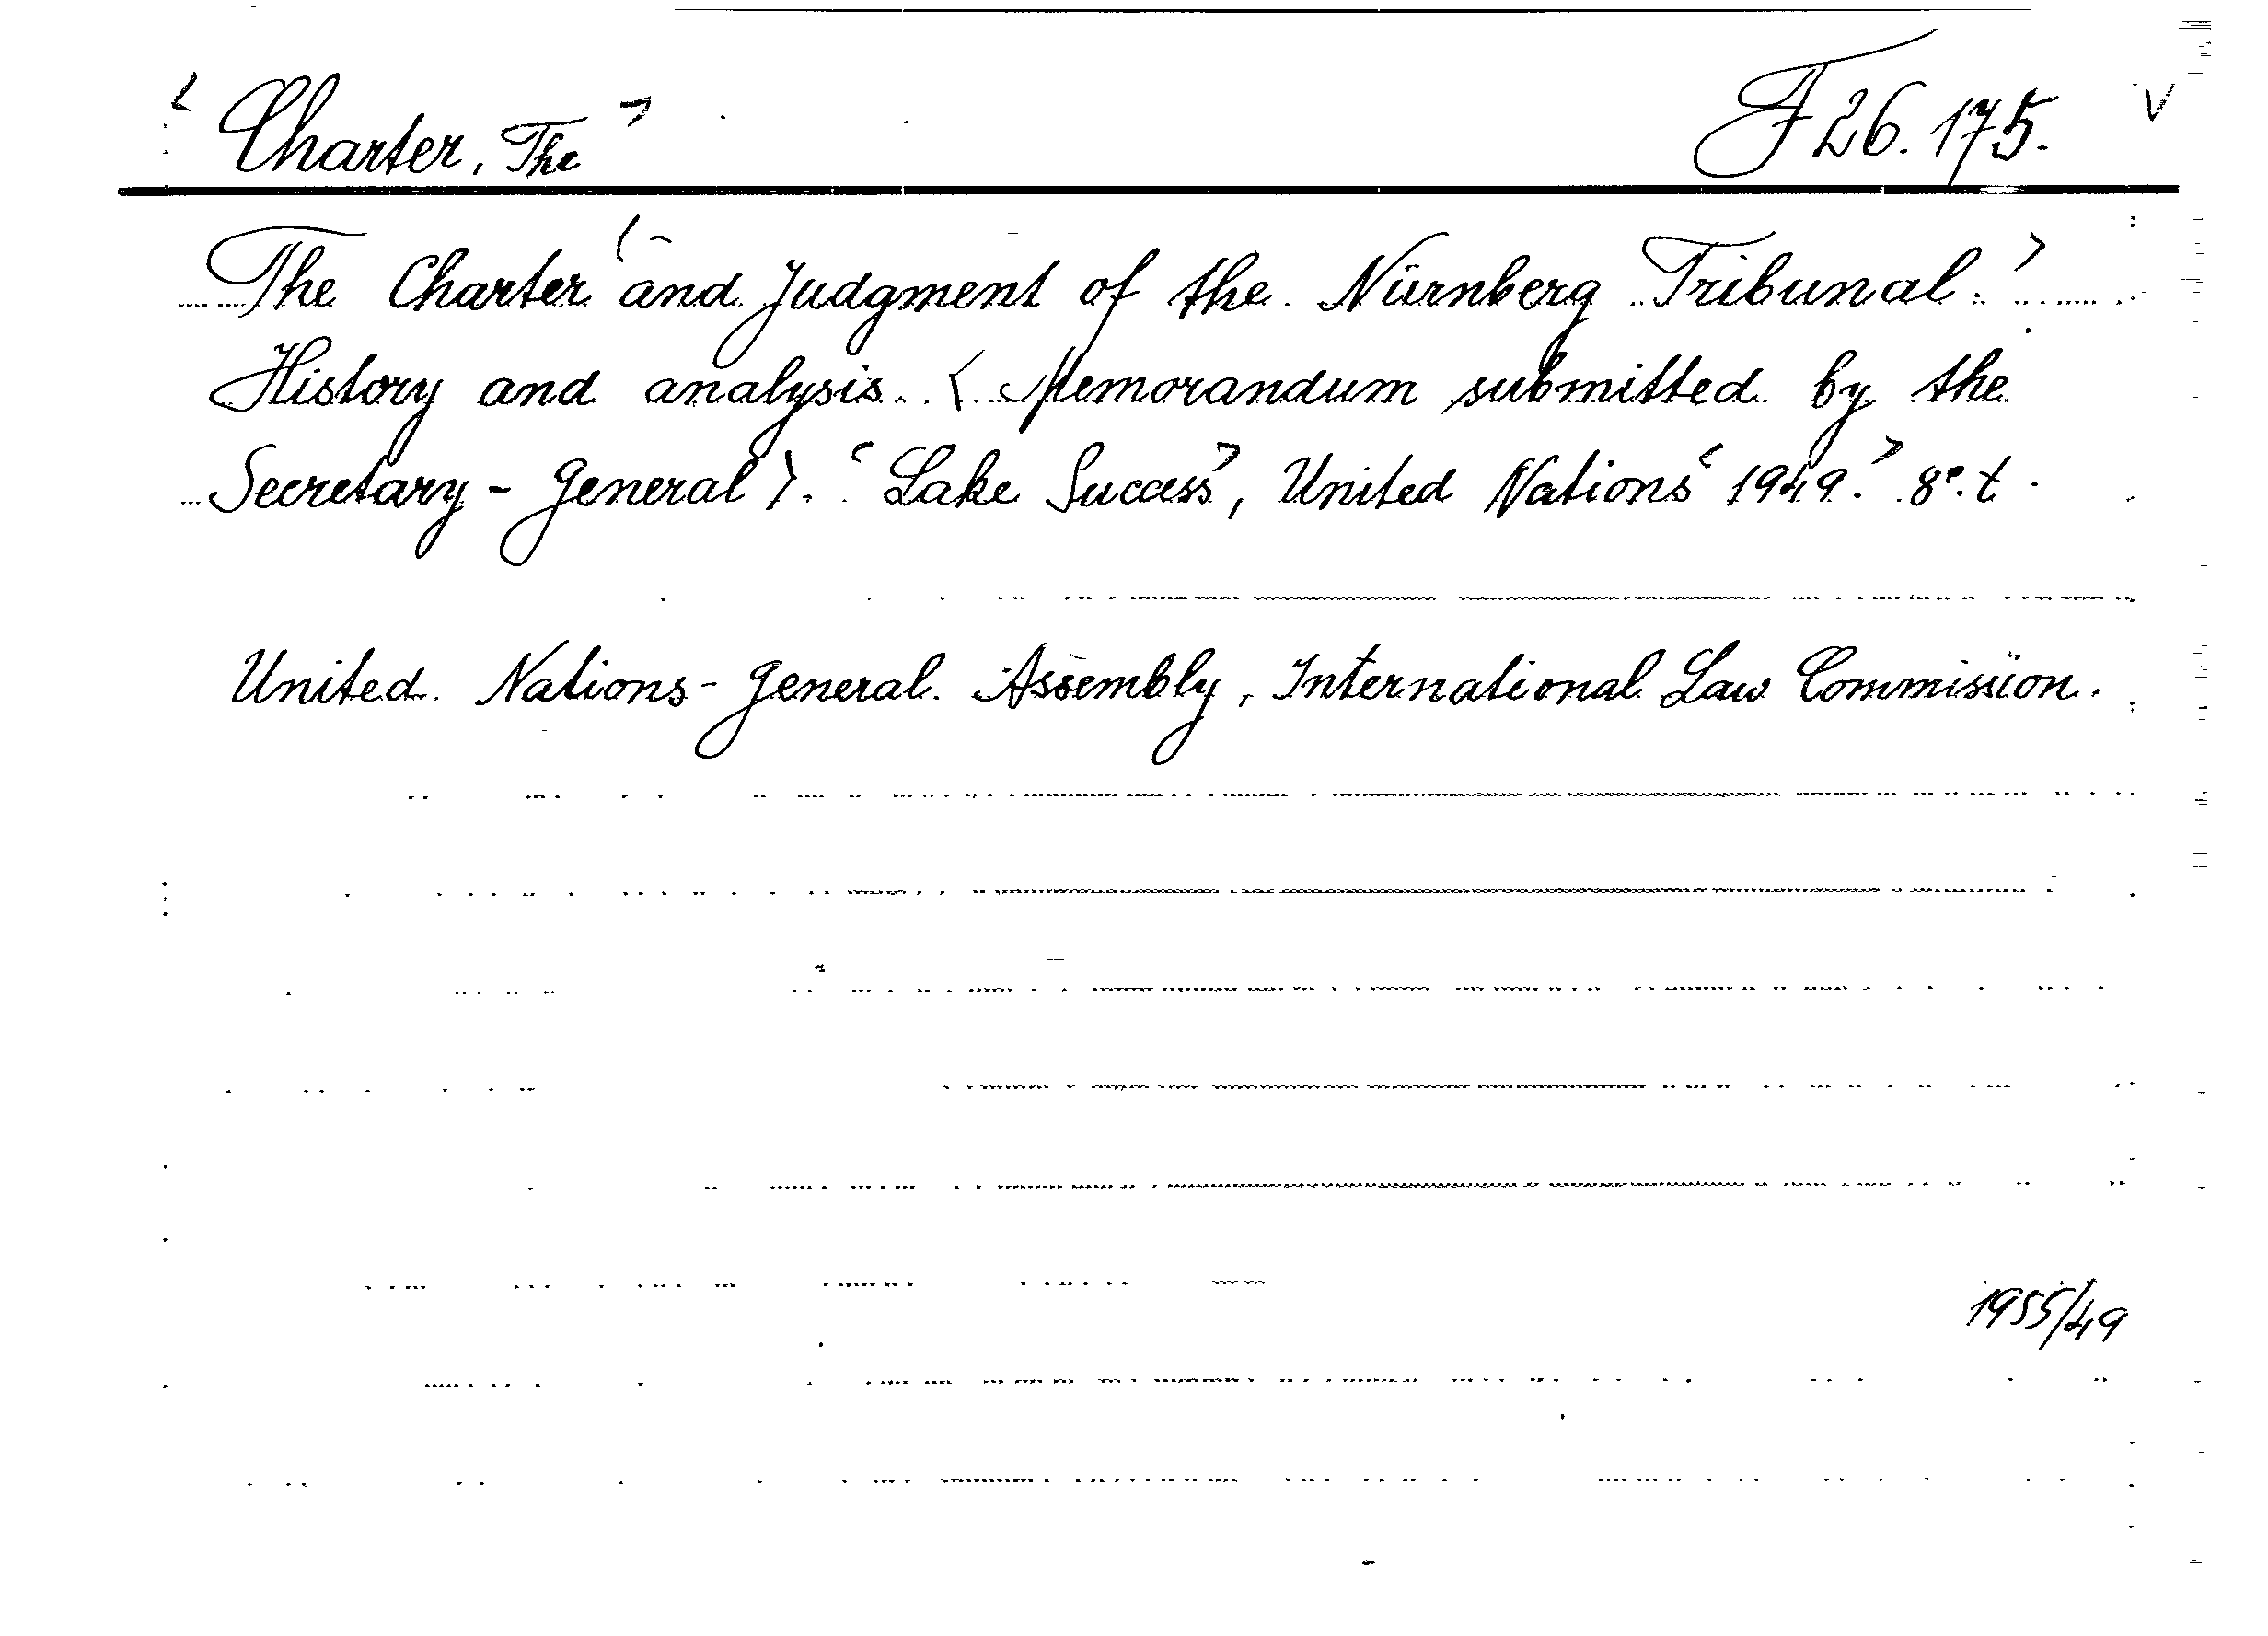 < Charter, The > F 26.175. V
The Charter < and Judgment of the Nürnberg Tribunal. >
History and analysis. ( Memorandum submitted by the
Secretary-General ). < Lake Success >, United Nations < 1949. > 8°. t.
United Nations - General Assembly, International Law Commission.
1955/49